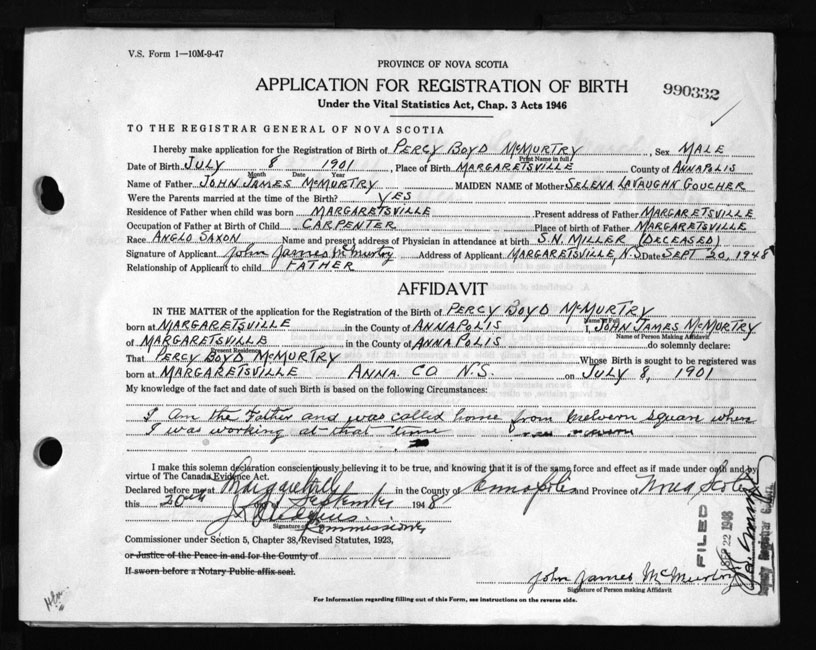 V.S. Form 1—10M-9-47
PROVINCE OF NOVA SCOTIA
APPLICATION FOR REGISTRATION OF BIRTH
990332
Under the Vital Statistics Act, Chap. 3 Acts 1946
TO THE REGISTRAR GENERAL OF NOVA SCOTIA
I hereby make application for the Registration of Birth of PERCY BOYD McMURTRY, Sex MALE
Print Name in full
Date of Birth JULY 8 1901, Place of Birth MARGARETSVILLE County of ANNAPOLIS
Month Date Year
Name of Father JOHN JAMES McMURTRY MAIDEN NAME of Mother SELENA LAVAUGHN GOUCHER
Were the Parents married at the time of the Birth? YES
Residence of Father when child was born MARGARETSVILLE Present address of Father MARGARETSVILLE
Occupation of Father at Birth of Child CARPENTER Place of birth of Father MARGARETSVILLE
Race ANGLO SAXON Name and present address of Physician in attendance at birth S.N. MILLER (DECEASED)
Signature of Applicant John James McMurtry Address of Applicant MARGARETSVILLE, N.S Date SEPT 20, 1948
Relationship of Applicant to child FATHER
AFFIDAVIT
IN THE MATTER of the application for the Registration of the Birth of PERCY BOYD McMURTRY
Name in Full
born at MARGARETSVILLE in the County of ANNAPOLIS I, JOHN JAMES McMURTRY
Name of Person Making Affidavit
of MARGARETSVILLE in the County of ANNAPOLIS do solemnly declare:
Present Residence
That PERCY BOYD McMURTRY Whose Birth is sought to be registered was
born at MARGARETSVILLE ANNA. CO N.S. on JULY 8, 1901
My knowledge of the fact and date of such Birth is based on the following Circumstances:
I Am the Father and was called home from Melvern Square when
I was working at that time
I make this solemn declaration conscientiously believing it to be true, and knowing that it is of the same force and effect as if made under oath and by
virtue of The Canada Evidence Act.
Declared before me at Margaretville in the County of Annapolis and Province of Nova Scotia
this 20th day of September 1948
Signature of
Commissioner
Commissioner under Section 5, Chapter 38, Revised Statutes, 1923,
or Justice of the Peace in and for the County of
If sworn before a Notary Public affix seal.
FILED
SEP 22 1948
John James McMurtry
Signature of Person making Affidavit
For information regarding filling out of this Form, see instructions on the reverse side.